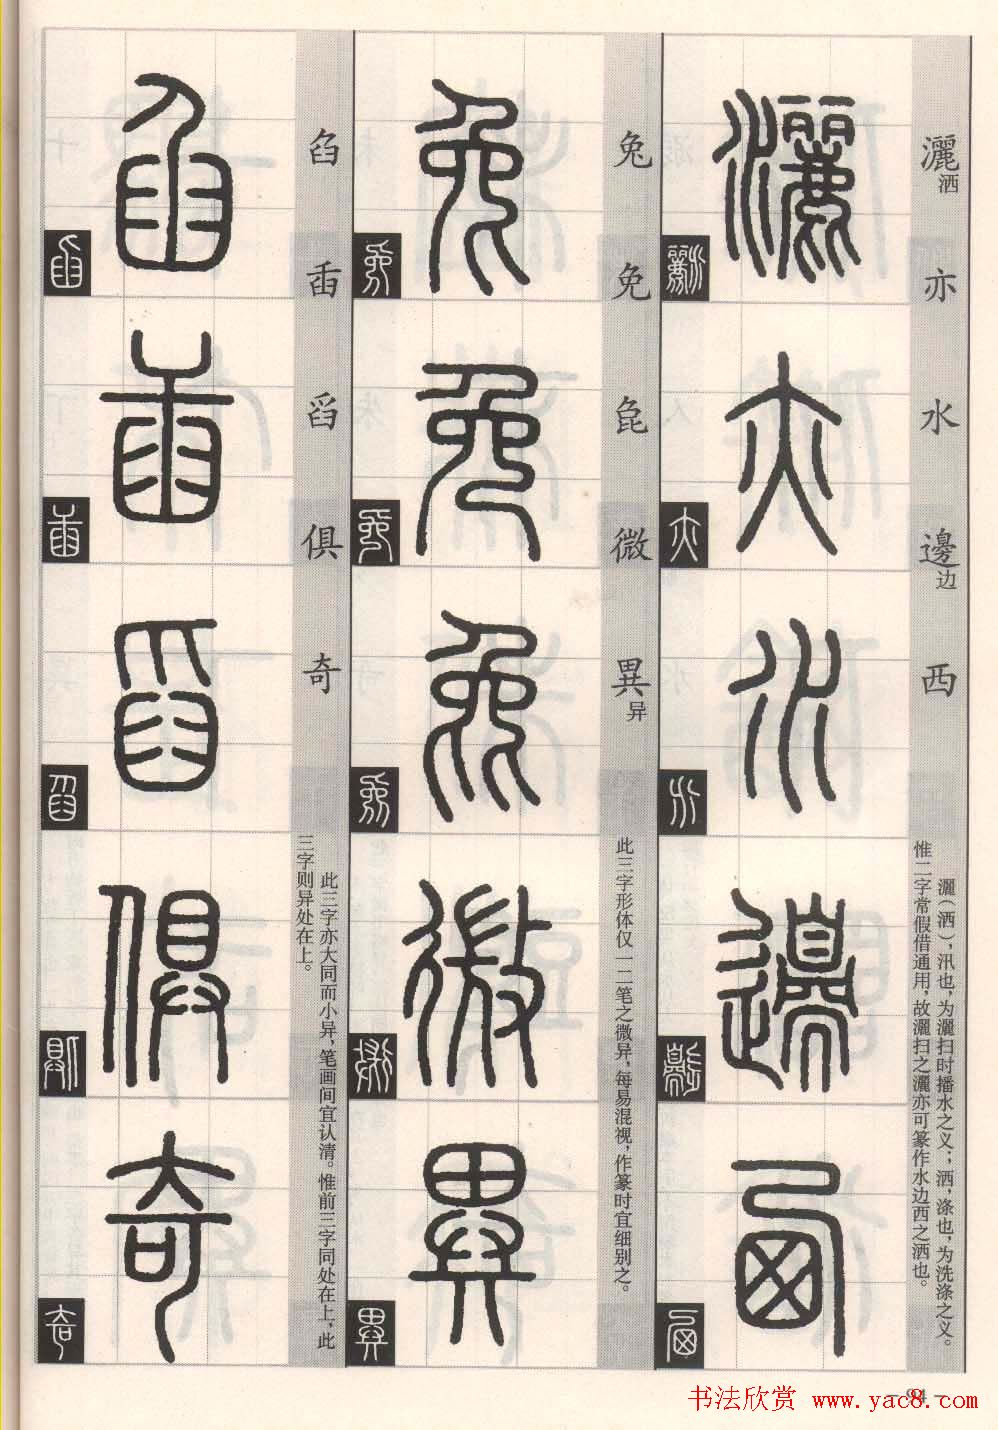 灑洒
亦
水
邊边
西
灑（洒），汛也，为灑扫时播水之义；洒，涤也，为洗涤之义。
惟二字常假借通用，故灑扫之灑亦可篆作水边西之洒也。
兔
免
㲋
微
異异
此三字形体仅一二笔之微异，每易混视，作篆时宜细别之。
臽
臿
舀
俱
奇
此三字亦大同而小异，笔画间宜认清。惟前三字同处在上，此
三字则异处在上。
书法欣赏 www.yac8.com